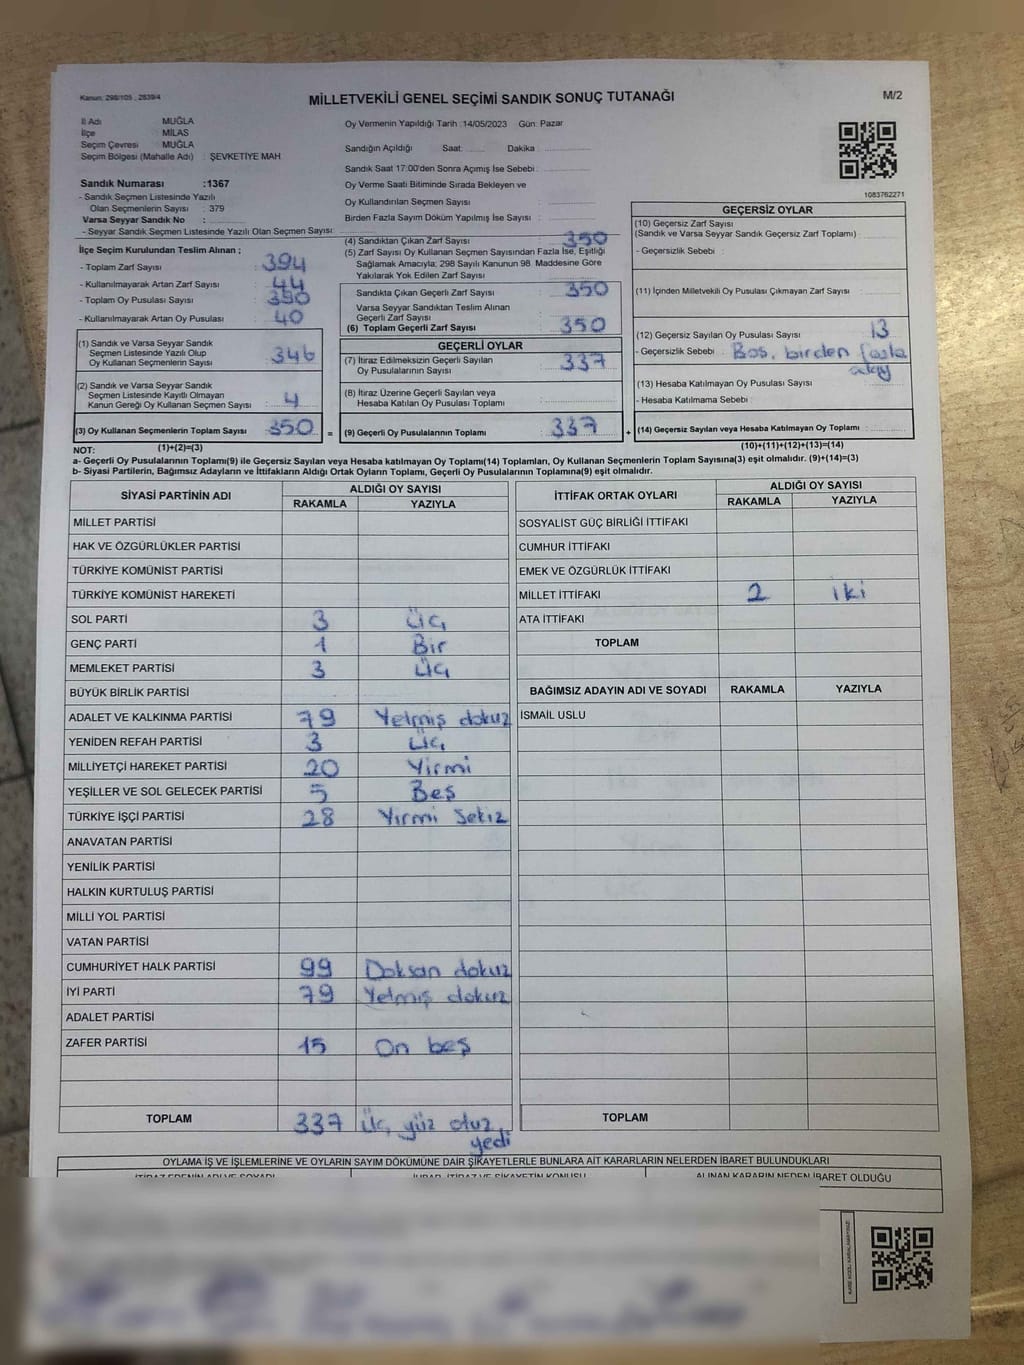 Kanun: 298/105 , 2839/4
MİLLETVEKİLİ GENEL SEÇİMİ SANDIK SONUÇ TUTANAĞI
M/2
İl Adı : MUĞLA
İlçe : MİLAS
Seçim Çevresi : MUĞLA
Seçim Bölgesi (Mahalle Adı) : ŞEVKETİYE MAH
Sandık Numarası :1367
- Sandık Seçmen Listesinde Yazılı
Olan Seçmenlerin Sayısı : 379
Varsa Seyyar Sandık No :
- Seyyar Sandık Seçmen Listesinde Yazılı Olan Seçmen Sayısı:
Oy Vermenin Yapıldığı Tarih :14/05/2023 Gün: Pazar
Sandığın Açıldığı Saat: Dakika :
Sandık Saat 17:00'den Sonra Açımış İse Sebebi :
Oy Verme Saati Bitiminde Sırada Bekleyen ve
Oy Kullandırılan Seçmen Sayısı :
Birden Fazla Sayım Döküm Yapılmış İse Sayısı :
1083762271
İlçe Seçim Kurulundan Teslim Alınan ;
- Toplam Zarf Sayısı : 394
- Kullanılmayarak Artan Zarf Sayısı : 44
- Toplam Oy Pusulası Sayısı : 390
- Kullanılmayarak Artan Oy Pusulası : 40
(1) Sandık ve Varsa Seyyar Sandık
Seçmen Listesinde Yazılı Olup
Oy Kullanan Seçmenlerin Sayısı : 346
(2) Sandık ve Varsa Seyyar Sandık
Seçmen Listesinde Kayıtlı Olmayan
Kanun Gereği Oy Kullanan Seçmen Sayısı : 4
(3) Oy Kullanan Seçmenlerin Toplam Sayısı : 350 =
(4) Sandıktan Çıkan Zarf Sayısı : 350
(5) Zarf Sayısı Oy Kullanan Seçmen Sayısından Fazla İse, Eşitliği
Sağlamak Amacıyla; 298 Sayılı Kanunun 98. Maddesine Göre
Yakılarak Yok Edilen Zarf Sayısı :
Sandıkta Çıkan Geçerli Zarf Sayısı : 350
Varsa Seyyar Sandıktan Teslim Alınan
Geçerli Zarf Sayısı :
(6) Toplam Geçerli Zarf Sayısı : 350
GEÇERLİ OYLAR
(7) İtiraz Edilmeksizin Geçerli Sayılan
Oy Pusulalarının Sayısı : 337
(8) İtiraz Üzerine Geçerli Sayılan veya
Hesaba Katılan Oy Pusulası Toplamı :
(9) Geçerli Oy Pusulalarının Toplamı : 337 +
GEÇERSİZ OYLAR
(10) Geçersiz Zarf Sayısı
(Sandık ve Varsa Seyyar Sandık Geçersiz Zarf Toplamı) :
- Geçersizlik Sebebi :
(11) İçinden Milletvekili Oy Pusulası Çıkmayan Zarf Sayısı :
(12) Geçersiz Sayılan Oy Pusulası Sayısı : 13
- Geçersizlik Sebebi : Boş, birden fazla
adaya
(13) Hesaba Katılmayan Oy Pusulası Sayısı :
- Hesaba Katılmama Sebebi :
(14) Geçersiz Sayılan veya Hesaba Katılmayan Oy Toplamı :
NOT: (1)+(2)=(3) (10)+(11)+(12)+(13)=(14)
a- Geçerli Oy Pusulalarının Toplamı(9) ile Geçersiz Sayılan veya Hesaba katılmayan Oy Toplamı(14) Toplamları, Oy Kullanan Seçmenlerin Toplam Sayısına(3) eşit olmalıdır. (9)+(14)=(3)
b- Siyasi Partilerin, Bağımsız Adayların ve İttifakların Aldığı Ortak Oyların Toplamı, Geçerli Oy Pusulalarının Toplamına(9) eşit olmalıdır.
SİYASİ PARTİNİN ADI ALDIĞI OY SAYISI
RAKAMLA YAZIYLA
MİLLET PARTİSİ
HAK VE ÖZGÜRLÜKLER PARTİSİ
TÜRKİYE KOMÜNİST PARTİSİ
TÜRKİYE KOMÜNİST HAREKETİ
SOL PARTİ 3 Üç
GENÇ PARTİ 1 Bir
MEMLEKET PARTİSİ 3 Üç
BÜYÜK BİRLİK PARTİSİ
ADALET VE KALKINMA PARTİSİ 79 Yetmiş dokuz
YENİDEN REFAH PARTİSİ 3 Üç
MİLLİYETÇİ HAREKET PARTİSİ 20 Yirmi
YEŞİLLER VE SOL GELECEK PARTİSİ 5 Beş
TÜRKİYE İŞÇİ PARTİSİ 28 Yirmi Sekiz
ANAVATAN PARTİSİ
YENİLİK PARTİSİ
HALKIN KURTULUŞ PARTİSİ
MİLLİ YOL PARTİSİ
VATAN PARTİSİ
CUMHURİYET HALK PARTİSİ 99 Doksan dokuz
İYİ PARTİ 79 Yetmiş dokuz
ADALET PARTİSİ
ZAFER PARTİSİ 15 On beş
TOPLAM 337 Üç yüz otuz
yedi
İTTİFAK ORTAK OYLARI ALDIĞI OY SAYISI
RAKAMLA YAZIYLA
SOSYALİST GÜÇ BİRLİĞİ İTTİFAKI
CUMHUR İTTİFAKI
EMEK VE ÖZGÜRLÜK İTTİFAKI
MİLLET İTTİFAKI 2 İki
ATA İTTİFAKI
TOPLAM
BAĞIMSIZ ADAYIN ADI VE SOYADI RAKAMLA YAZIYLA
İSMAİL USLU
TOPLAM
OYLAMA İŞ VE İŞLEMLERİNE VE OYLARIN SAYIM DÖKÜMÜNE DAİR ŞİKAYETLERLE BUNLARA AİT KARARLARIN NELERDEN İBARET BULUNDUKLARI
İTİRAZ EDENİN ADI VE SOYADI İHBAR, İTİRAZ VE ŞİKAYETİN KONUSU ALINAN KARARIN NEDEN İBARET OLDUĞU